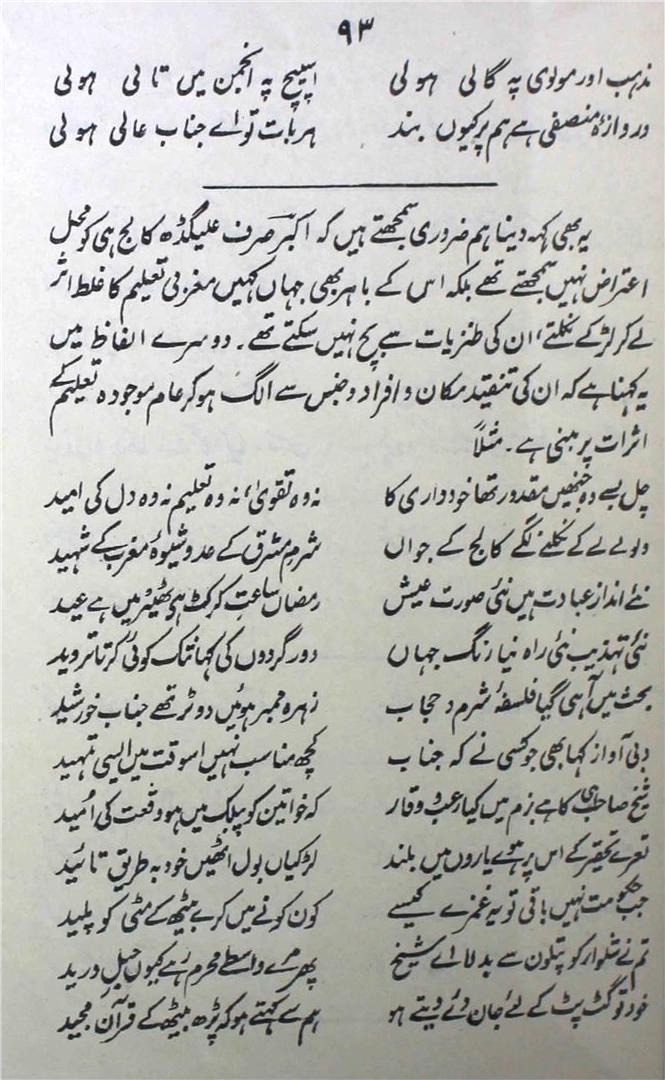 ۹۳
مذہب اور مولوی پہ گالی ہولی اسپیچ پہ انجمن میں تالی ہولی
دروازۂ منصفی ہے ہم پر کیوں بند ہر بات تو اے جناب عالی ہولی
یہ بھی کہہ دینا ہم ضروری سمجھتے ہیں کہ اکبر صرف علیگڈھ کالج ہی کو محل
اعتراض نہیں سمجھتے تھے بلکہ اس کے باہر بھی جہاں کہیں مغربی تعلیم کا غلط اثر
لے کر لڑکے نکلتے، ان کی طنزیات سے بچ نہیں سکتے تھے۔ دوسرے الفاظ میں
یہ کہنا ہے کہ ان کی تنقید مکان و افراد و جنس سے الگ ہو کر عام موجودہ تعلیم کے
اثرات پر مبنی ہے۔ مثلاً
چل بسے وہ جنھیں مقدور تھا خود داری کا نہ وہ تقویٰ، نہ وہ تعلیم نہ وہ دل کی امید
ولولے لے کے نکلنے لگے کالج کے جواں شرم مشرق کے عدو شیوۂ مغرب کے شہید
نئے انداز عبادت ہیں نئی صورت عیش رمضاں ساعت کرکٹ ہی تھیٹر میں ہے عید
نئی تہذیب نئی راہ نیا رنگ جہاں دور گردوں کی کہاں تک کوئی کرتا تردید
بحث میں آ ہی گیا فلسفۂ شرم و حجاب زہرہ ممبر ہوئیں ووٹر تھے جناب خورشید
دبی آواز کہا بھی جو کسی نے کہ جناب کچھ مناسب نہیں اسوقت میں ایسی تمہید
شیخ صاحب ہی کا ہے بزم میں کیا رعب و وقار کہ خواتین کو پبلک میں ہو وقعت کی اُمید
نعرے تحقیر کے اس پر ہوے یاروں میں بلند لڑکیاں بول اٹھیں خود بہ طریق تائید
جب حکومت نہیں باقی تو یہ غمزے کیسے کون کونے میں کرے بیٹھ کے مٹی کو پلید
تم نے شلوار کو پتلون سے بدلا اے شیخ پھر مرے واسطے محرم رہے کیوں حبل ورید
خود تو گٹ پٹ کے لئے جان دئے دیتے ہو ہم سے کہتے ہو کہ پڑھ بیٹھ کے قرآن مجید